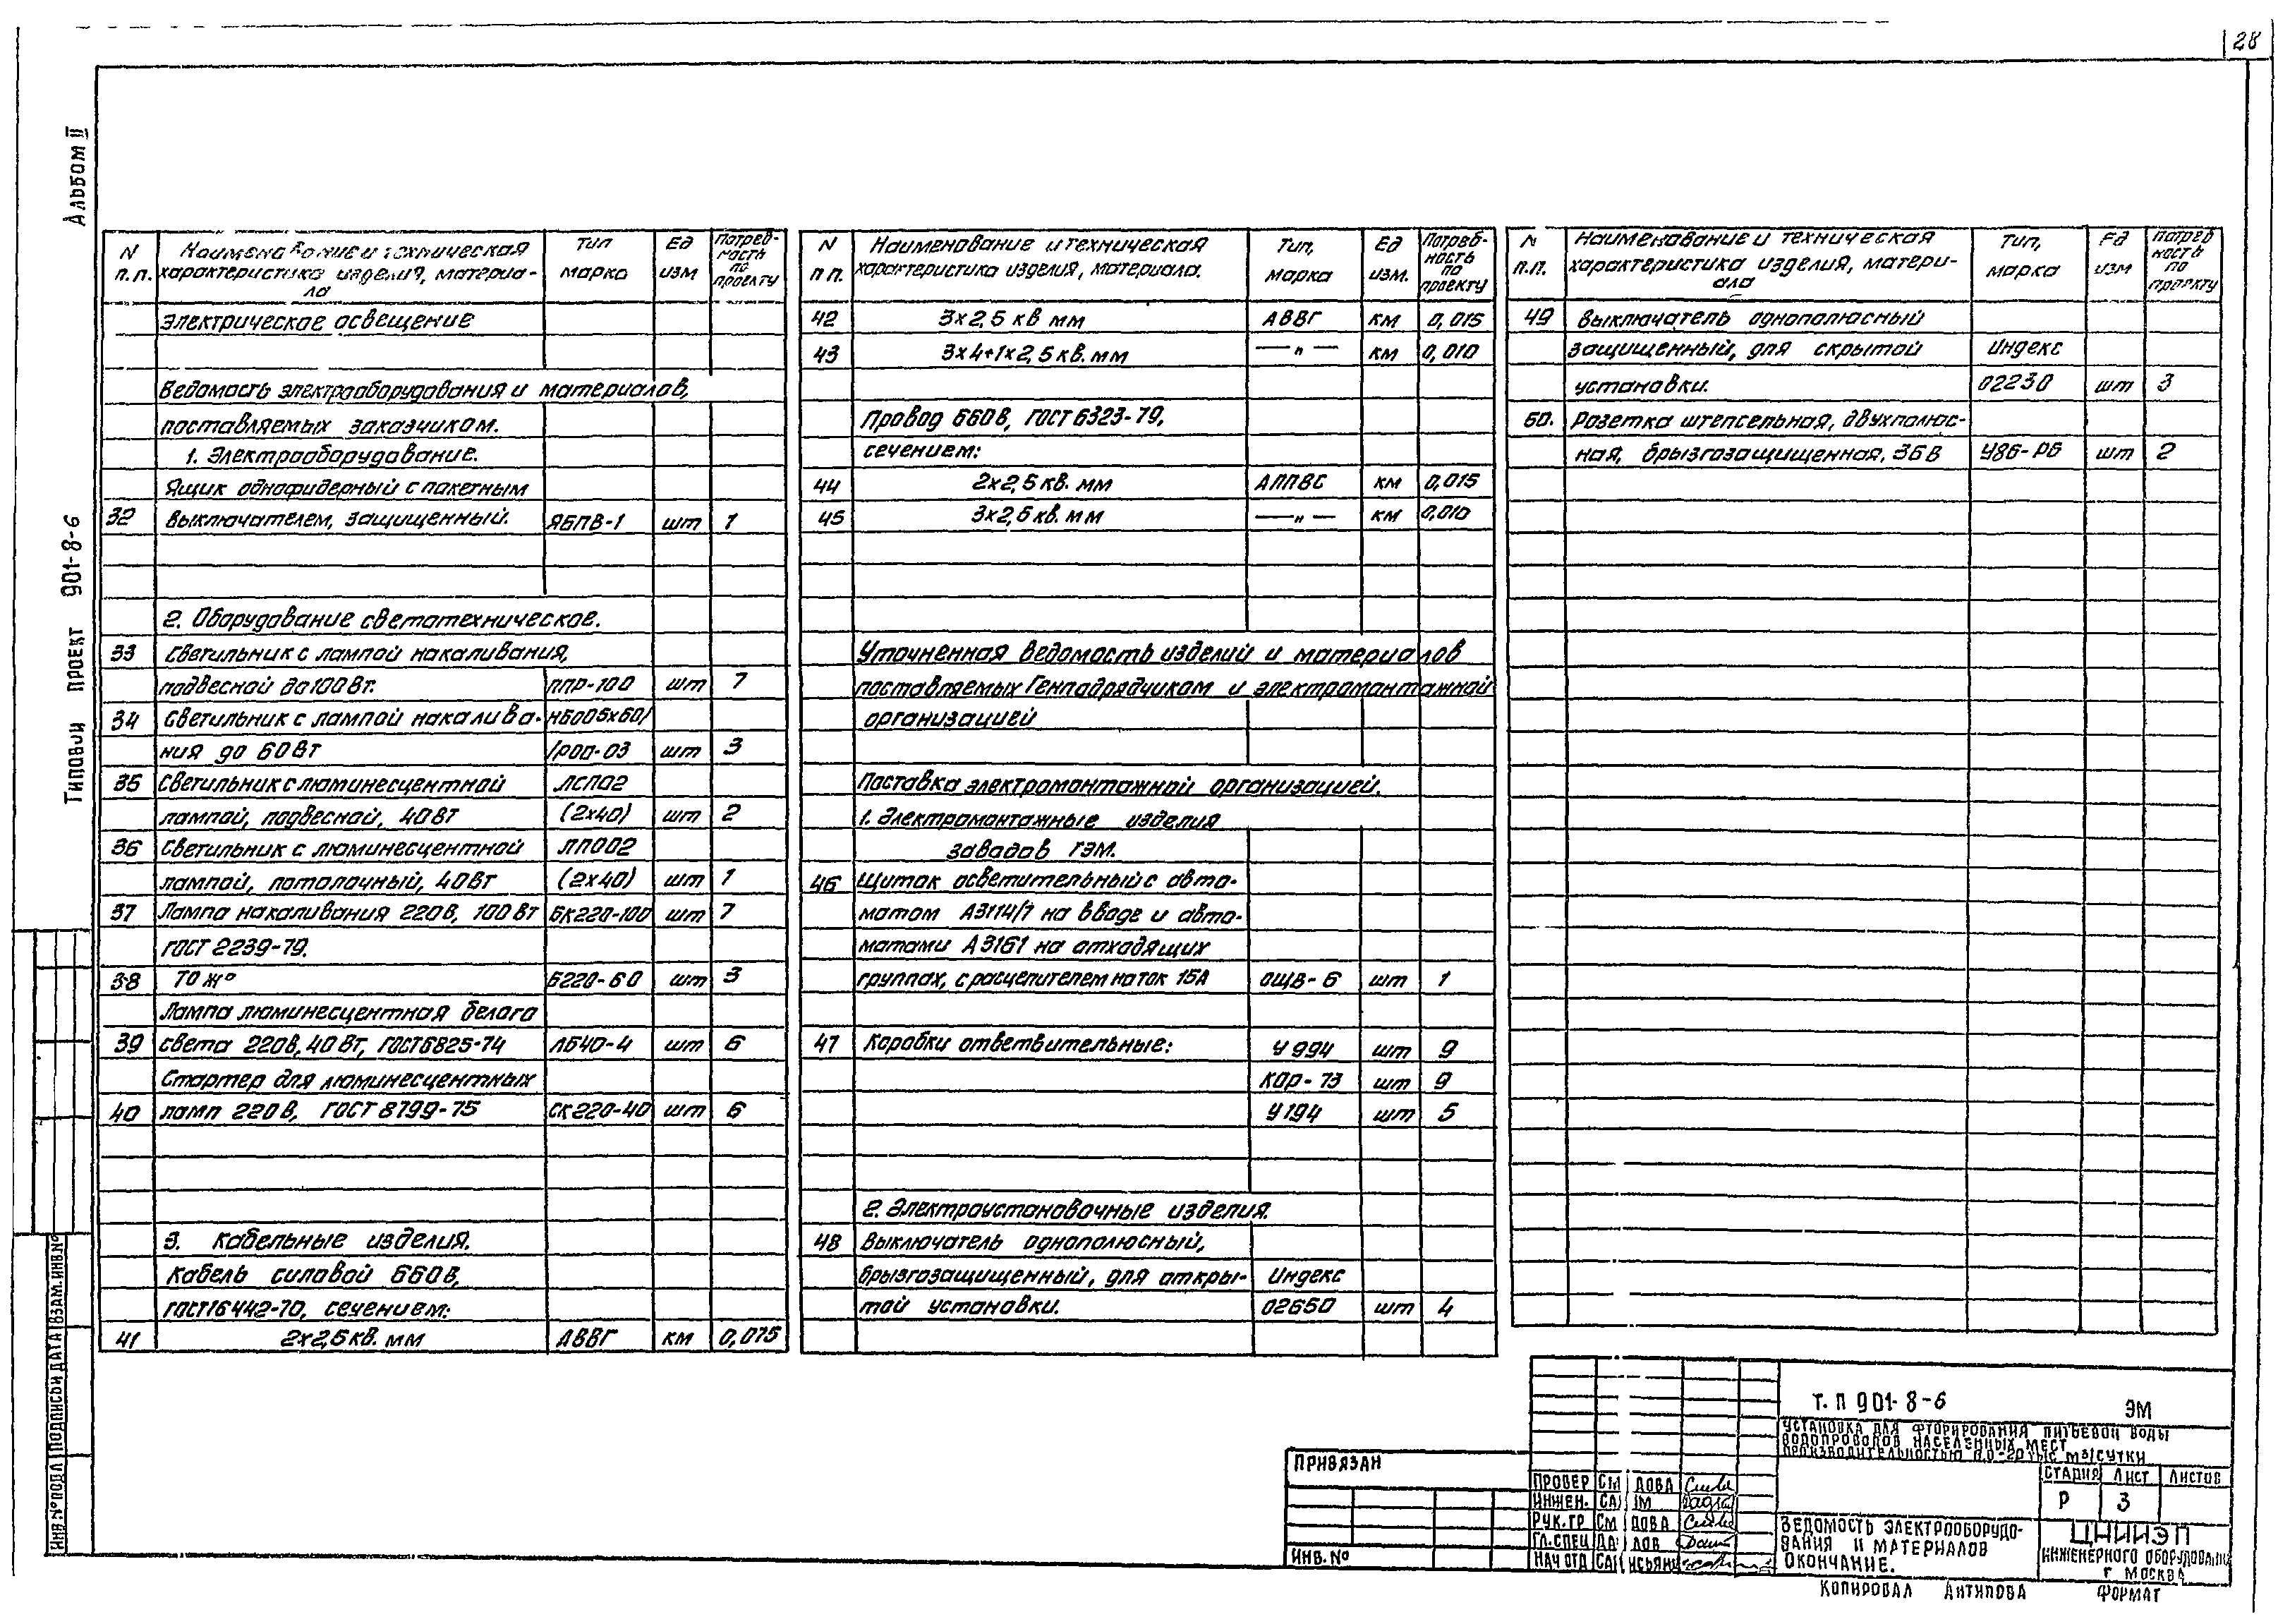 28
Альбом II
Типовой проект 901-8-6
N п.п. Наименование и техническая характеристика изделия, материала Тип марка Ед изм Потребность по проекту
Электрическое освещение
Ведомость электрооборудования и материалов,
поставляемых заказчиком.
1. Электрооборудование.
Ящик однофидерный с пакетным
32 выключателем, защищенный. ЯБПВ-1 шт 1
2. Оборудование светотехническое.
33 Светильник с лампой накаливания,
подвесной до 100 Вт. ППР-100 шт 7
34 Светильник с лампой накалива- НБ005х60/
ния до 60 Вт /РОП-03 шт 3
35 Светильник с люминесцентной ЛСП02
лампой, подвесной, 40 Вт (2х40) шт 2
36 Светильник с люминесцентной ЛПО02
лампой, потолочный, 40 Вт (2х40) шт 1
37 Лампа накаливания 220 В, 100 Вт БК220-100 шт 7
ГОСТ 2239-79.
38 То же Б220-60 шт 3
Лампа люминесцентная белого
39 света 220В, 40 Вт, ГОСТ 6825-74 ЛБ40-4 шт 6
Стартер для люминесцентных
40 ламп 220 В, ГОСТ 8799-75 СК220-40 шт 6
3. Кабельные изделия.
Кабель силовой 660 В,
ГОСТ 16442-70, сечением:
41 2х2,5 кв. мм АВВГ км 0,075
N п п. Наименование и техническая характеристика изделия, материала. Тип, марка Ед изм. Потребность по проекту
42 3х2,5 кв мм АВВГ км 0,015
43 3х4+1х2,5 кв. мм —"— км 0,010
Провод 660 В, ГОСТ 6323-79,
сечением:
44 2х2,5 кв. мм АППВС км 0,015
45 3х2,5 кв. мм —"— км 0,010
Уточненная ведомость изделий и материалов
поставляемых Генподрядчиком и электромонтажной
организацией
Поставка электромонтажной организацией.
1. Электромонтажные изделия
заводов ГЭМ.
46 Щиток осветительный с авто-
матом А3114/7 на вводе и авто-
матами А3161 на отходящих
группах, с расцепителем на ток 15А ОЩВ-6 шт 1
47 Коробки ответвительные: У 994 шт 9
КОР-73 шт 9
У194 шт 5
2. Электроустановочные изделия.
48 Выключатель однополюсный,
брызгозащищенный, для откры- Индекс
той установки. 02650 шт 4
N п.п. Наименование и техническая характеристика изделия, материала Тип, марка Ед изм Потреб ность по проекту
49 Выключатель однополюсный
защищенный, для скрытой Индекс
установки. 02230 шт 3
50. Розетка штепсельная, двухполюс-
ная, брызгозащищенная, 36 В У86-РБ шт 2
ИНВ.№ ПОДЛ ПОДПИСЬ И ДАТА ВЗАМ.ИНВ.№
ПРИВЯЗАН
ИНВ. №
Т. П 901-8-6 ЭМ
УСТАНОВКА ДЛЯ ФТОРИРОВАНИЯ ПИТЬЕВОЙ ВОДЫ
ВОДОПРОВОДОВ НАСЕЛЕННЫХ МЕСТ
ПРОИЗВОДИТЕЛЬНОСТЬЮ ТЫС М3/СУТКИ
ПРОВЕР СМ ДОВА
ИНЖЕН.
РУК.ГР СМ ДОВА
ГЛ.СПЕЦ
НАЧ ОТД
СТАДИЯ ЛИСТ ЛИСТОВ
Р 3
ВЕДОМОСТЬ ЭЛЕКТРООБОРУДО-
ВАНИЯ И МАТЕРИАЛОВ
ОКОНЧАНИЕ.
ЦНИИЭП
ИНЖЕНЕРНОГО ОБОРУДОВАНИЯ
Г МОСКВА
КОПИРОВАЛ АНТИПОВА ФОРМАТ